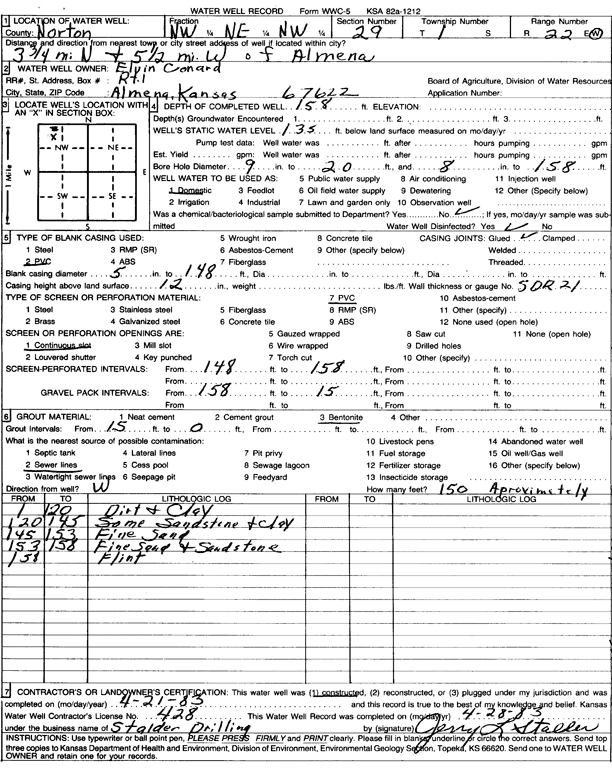 WATER WELL RECORD Form WWC-5 KSA 82a-1212
1 LOCATION OF WATER WELL: Fraction Section Number Township Number Range Number
County: Norton NW ¼ NE ¼ NW ¼ 29 T 1 S R 22 E/W
Distance and direction from nearest town or city street address of well if located within city?
3 3/4 mi N + 5 1/2 mi. W of Almena
2 WATER WELL OWNER: Elvin Conard
RR#, St. Address, Box # : Rt. 1 Board of Agriculture, Division of Water Resources
City, State, ZIP Code : Almena, Kansas 67622 Application Number:
3 LOCATE WELL'S LOCATION WITH AN "X" IN SECTION BOX:
N
X
NW NE
W E
SW SE
S
1 Mile
4 DEPTH OF COMPLETED WELL 158 ft. ELEVATION:
Depth(s) Groundwater Encountered 1. ft. 2. ft. 3. ft.
WELL'S STATIC WATER LEVEL 135 ft. below land surface measured on mo/day/yr
Pump test data: Well water was ft. after hours pumping gpm
Est. Yield gpm: Well water was ft. after hours pumping gpm
Bore Hole Diameter 9 in. to 20 ft., and 8 in. to 158 ft.
WELL WATER TO BE USED AS: 5 Public water supply 8 Air conditioning 11 Injection well
1 Domestic 3 Feedlot 6 Oil field water supply 9 Dewatering 12 Other (Specify below)
2 Irrigation 4 Industrial 7 Lawn and garden only 10 Observation well
Was a chemical/bacteriological sample submitted to Department? Yes No ✓; If yes, mo/day/yr sample was submitted
Water Well Disinfected? Yes ✓ No
5 TYPE OF BLANK CASING USED: 5 Wrought iron 8 Concrete tile CASING JOINTS: Glued ✓ Clamped
1 Steel 3 RMP (SR) 6 Asbestos-Cement 9 Other (specify below) Welded
2 PVC 4 ABS 7 Fiberglass Threaded.
Blank casing diameter 5 in. to 148 ft., Dia in. to ft., Dia in. to ft.
Casing height above land surface 12 in., weight lbs./ft. Wall thickness or gauge No. SDR 21
TYPE OF SCREEN OR PERFORATION MATERIAL: 7 PVC 10 Asbestos-cement
1 Steel 3 Stainless steel 5 Fiberglass 8 RMP (SR) 11 Other (specify)
2 Brass 4 Galvanized steel 6 Concrete tile 9 ABS 12 None used (open hole)
SCREEN OR PERFORATION OPENINGS ARE: 5 Gauzed wrapped 8 Saw cut 11 None (open hole)
1 Continuous slot 3 Mill slot 6 Wire wrapped 9 Drilled holes
2 Louvered shutter 4 Key punched 7 Torch cut 10 Other (specify)
SCREEN-PERFORATED INTERVALS: From 148 ft. to 158 ft., From ft. to ft.
From ft. to ft., From ft. to ft.
GRAVEL PACK INTERVALS: From 158 ft. to 15 ft., From ft. to ft.
From ft. to ft., From ft. to ft.
6 GROUT MATERIAL: 1 Neat cement 2 Cement grout 3 Bentonite 4 Other
Grout Intervals: From 15 ft. to 0 ft., From ft. to ft., From ft. to ft.
What is the nearest source of possible contamination: 10 Livestock pens 14 Abandoned water well
1 Septic tank 4 Lateral lines 7 Pit privy 11 Fuel storage 15 Oil well/Gas well
2 Sewer lines 5 Cess pool 8 Sewage lagoon 12 Fertilizer storage 16 Other (specify below)
3 Watertight sewer lines 6 Seepage pit 9 Feedyard 13 Insecticide storage
Direction from well? W How many feet? 150 Aproximately
FROM TO LITHOLOGIC LOG FROM TO LITHOLOGIC LOG
1 120 Dirt & Clay
120 145 Some Sandstone & Clay
145 153 Fine Sand
153 158 Fine Sand & Sandstone
158 Flint
7 CONTRACTOR'S OR LANDOWNER'S CERTIFICATION: This water well was (1) constructed, (2) reconstructed, or (3) plugged under my jurisdiction and was
completed on (mo/day/year) 4-21-83 and this record is true to the best of my knowledge and belief. Kansas
Water Well Contractor's License No. 428 This Water Well Record was completed on (mo/day/yr) 4-28-83
under the business name of Stalder Drilling by (signature) Jerry L Stalder
INSTRUCTIONS: Use typewriter or ball point pen, PLEASE PRESS FIRMLY and PRINT clearly. Please fill in blanks, underline or circle the correct answers. Send top
three copies to Kansas Department of Health and Environment, Division of Environment, Environmental Geology Section, Topeka, KS 66620. Send one to WATER WELL
OWNER and retain one for your records.